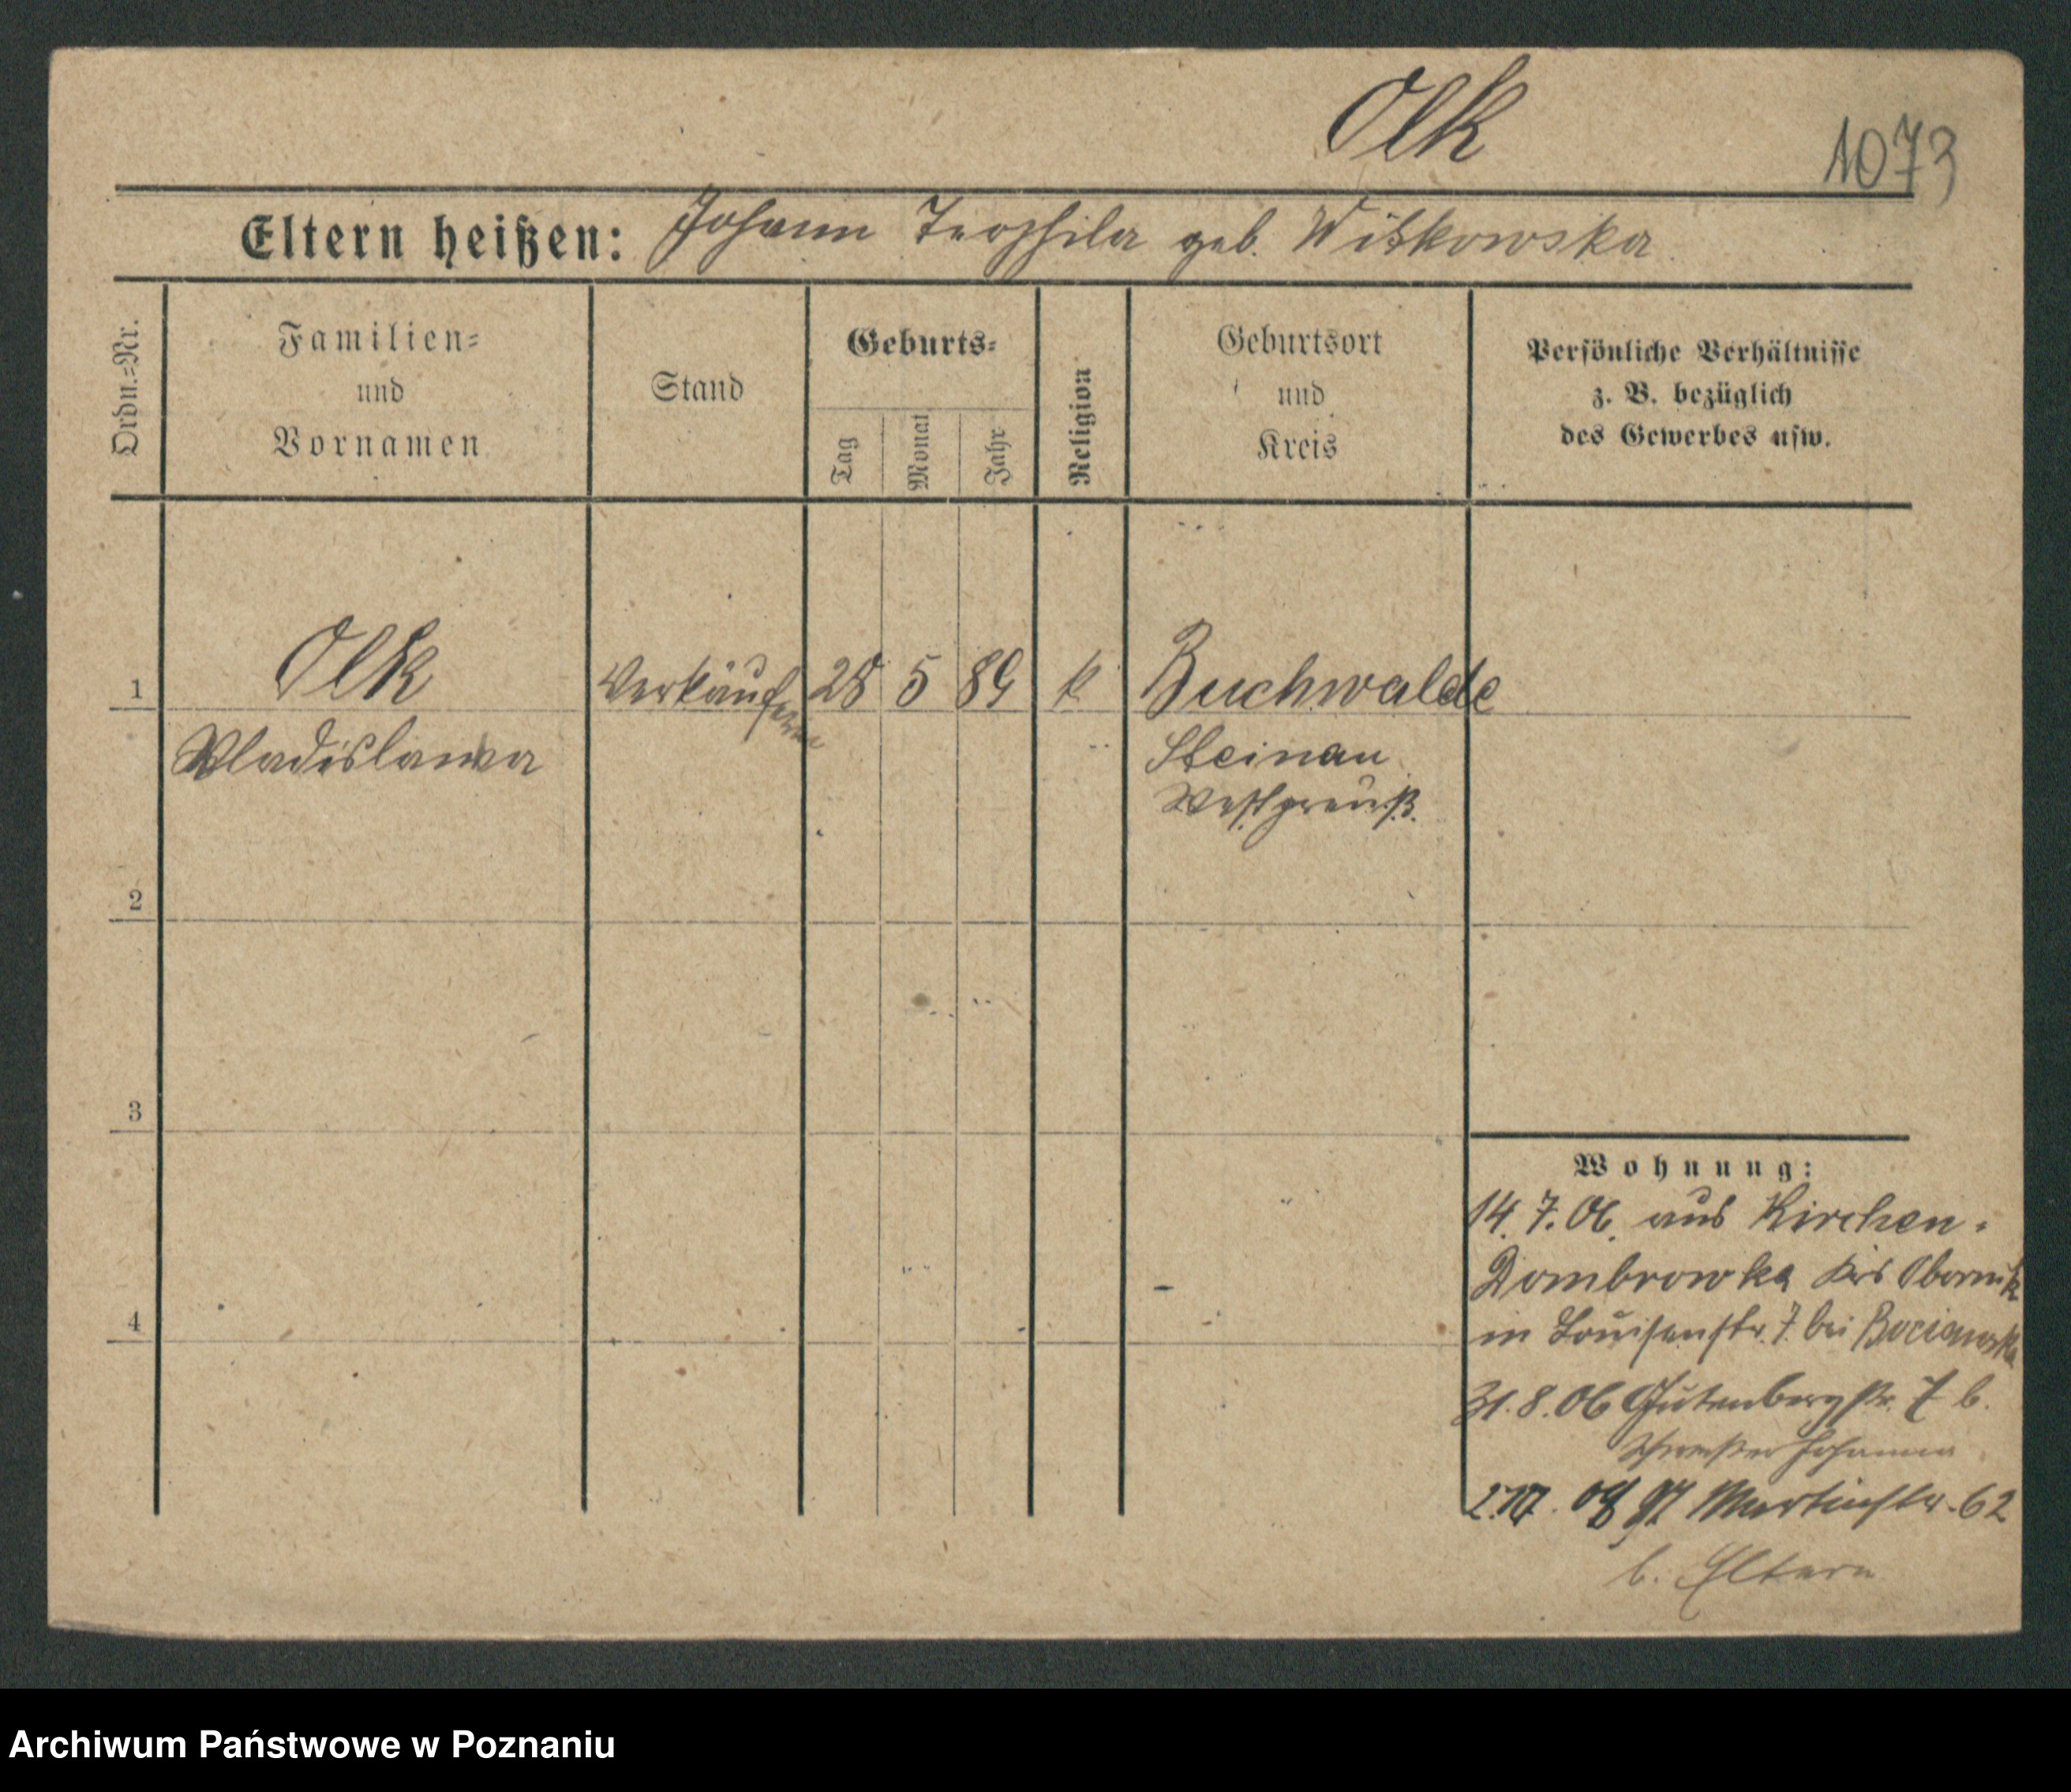 Olk
1073
Eltern heißen: Johann Teophila geb. Witkowska
Ordn.-Nr.
Familien-
und
Vornamen
Stand
Geburts-
Tag
Monat
Jahr
Religion
Geburtsort
und
Kreis
Persönliche Verhältnisse
z. B. bezüglich
des Gewerbes usw.
1
Olk
Verkäuferin
28 5 89 k
Buchwalde
Wladislawa
Steinau
Westpreuß.
2
3
4
Wohnung:
14.7.06. aus Kirchen-
Dombrowka Krs Obornik
in Louisenstr. 7. bei Bocianoska
31.8.06 Gutenbergstr. 7 b.
Schwester Johanna
St Martinstr. 62
b. Eltern
Archiwum Państwowe w Poznaniu